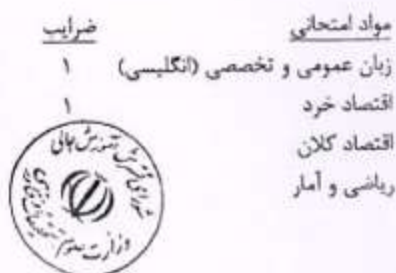 مواد امتحانی ضرایب
زبان عمومی و تخصصی (انگلیسی) ۱
اقتصاد خرد ۱
اقتصاد کلان
ریاضی و آمار
شورای گسترش آموزش عالی
وزارت علوم